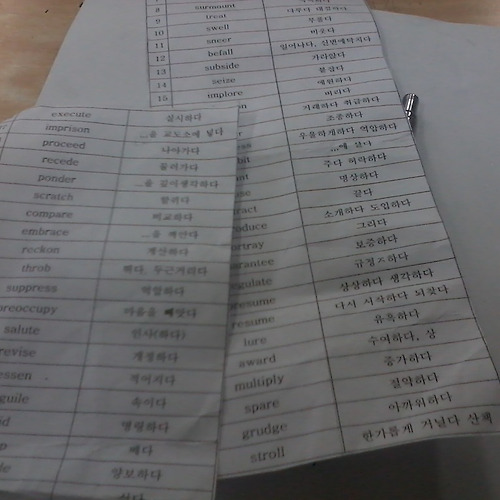 8 surmount
9 treat 다루다 대접하다
10 swell 부풀다
11 sneer 비웃다
12 befall 일어나다, 신변에닥치다
13 subside 가라앉다
14 seize 붙잡다
15 implore 애원하다
버리다
지배하다 취급하다
조종하다
우울하게하다 억압하다
...에 살다
주다 허락하다
명상하다
끌다
소개하다 도입하다
그리다
보증하다
상상하다 생각하다
resume 다시 시작하다 되찾다
lure 유혹하다
award 수여하다, 상
multiply 증가하다
spare 절약하다
grudge 아까워하다
stroll 한가롭게 거닐다 산책
execute 실시하다
imprison ...을 교도소에 넣다
proceed 나아가다
recede 물러가다
ponder ...을 깊이생각하다
scratch 할퀴다
compare 비교하다
embrace
reckon 계산하다
throb 뛰다, 두근거리다
suppress 억압하다
preoccupy 마음을 빼앗다
salute 인사(하다)
revise 개정하다
essen 적어지다
guile 속이다
명령하다
빼다
양보하다